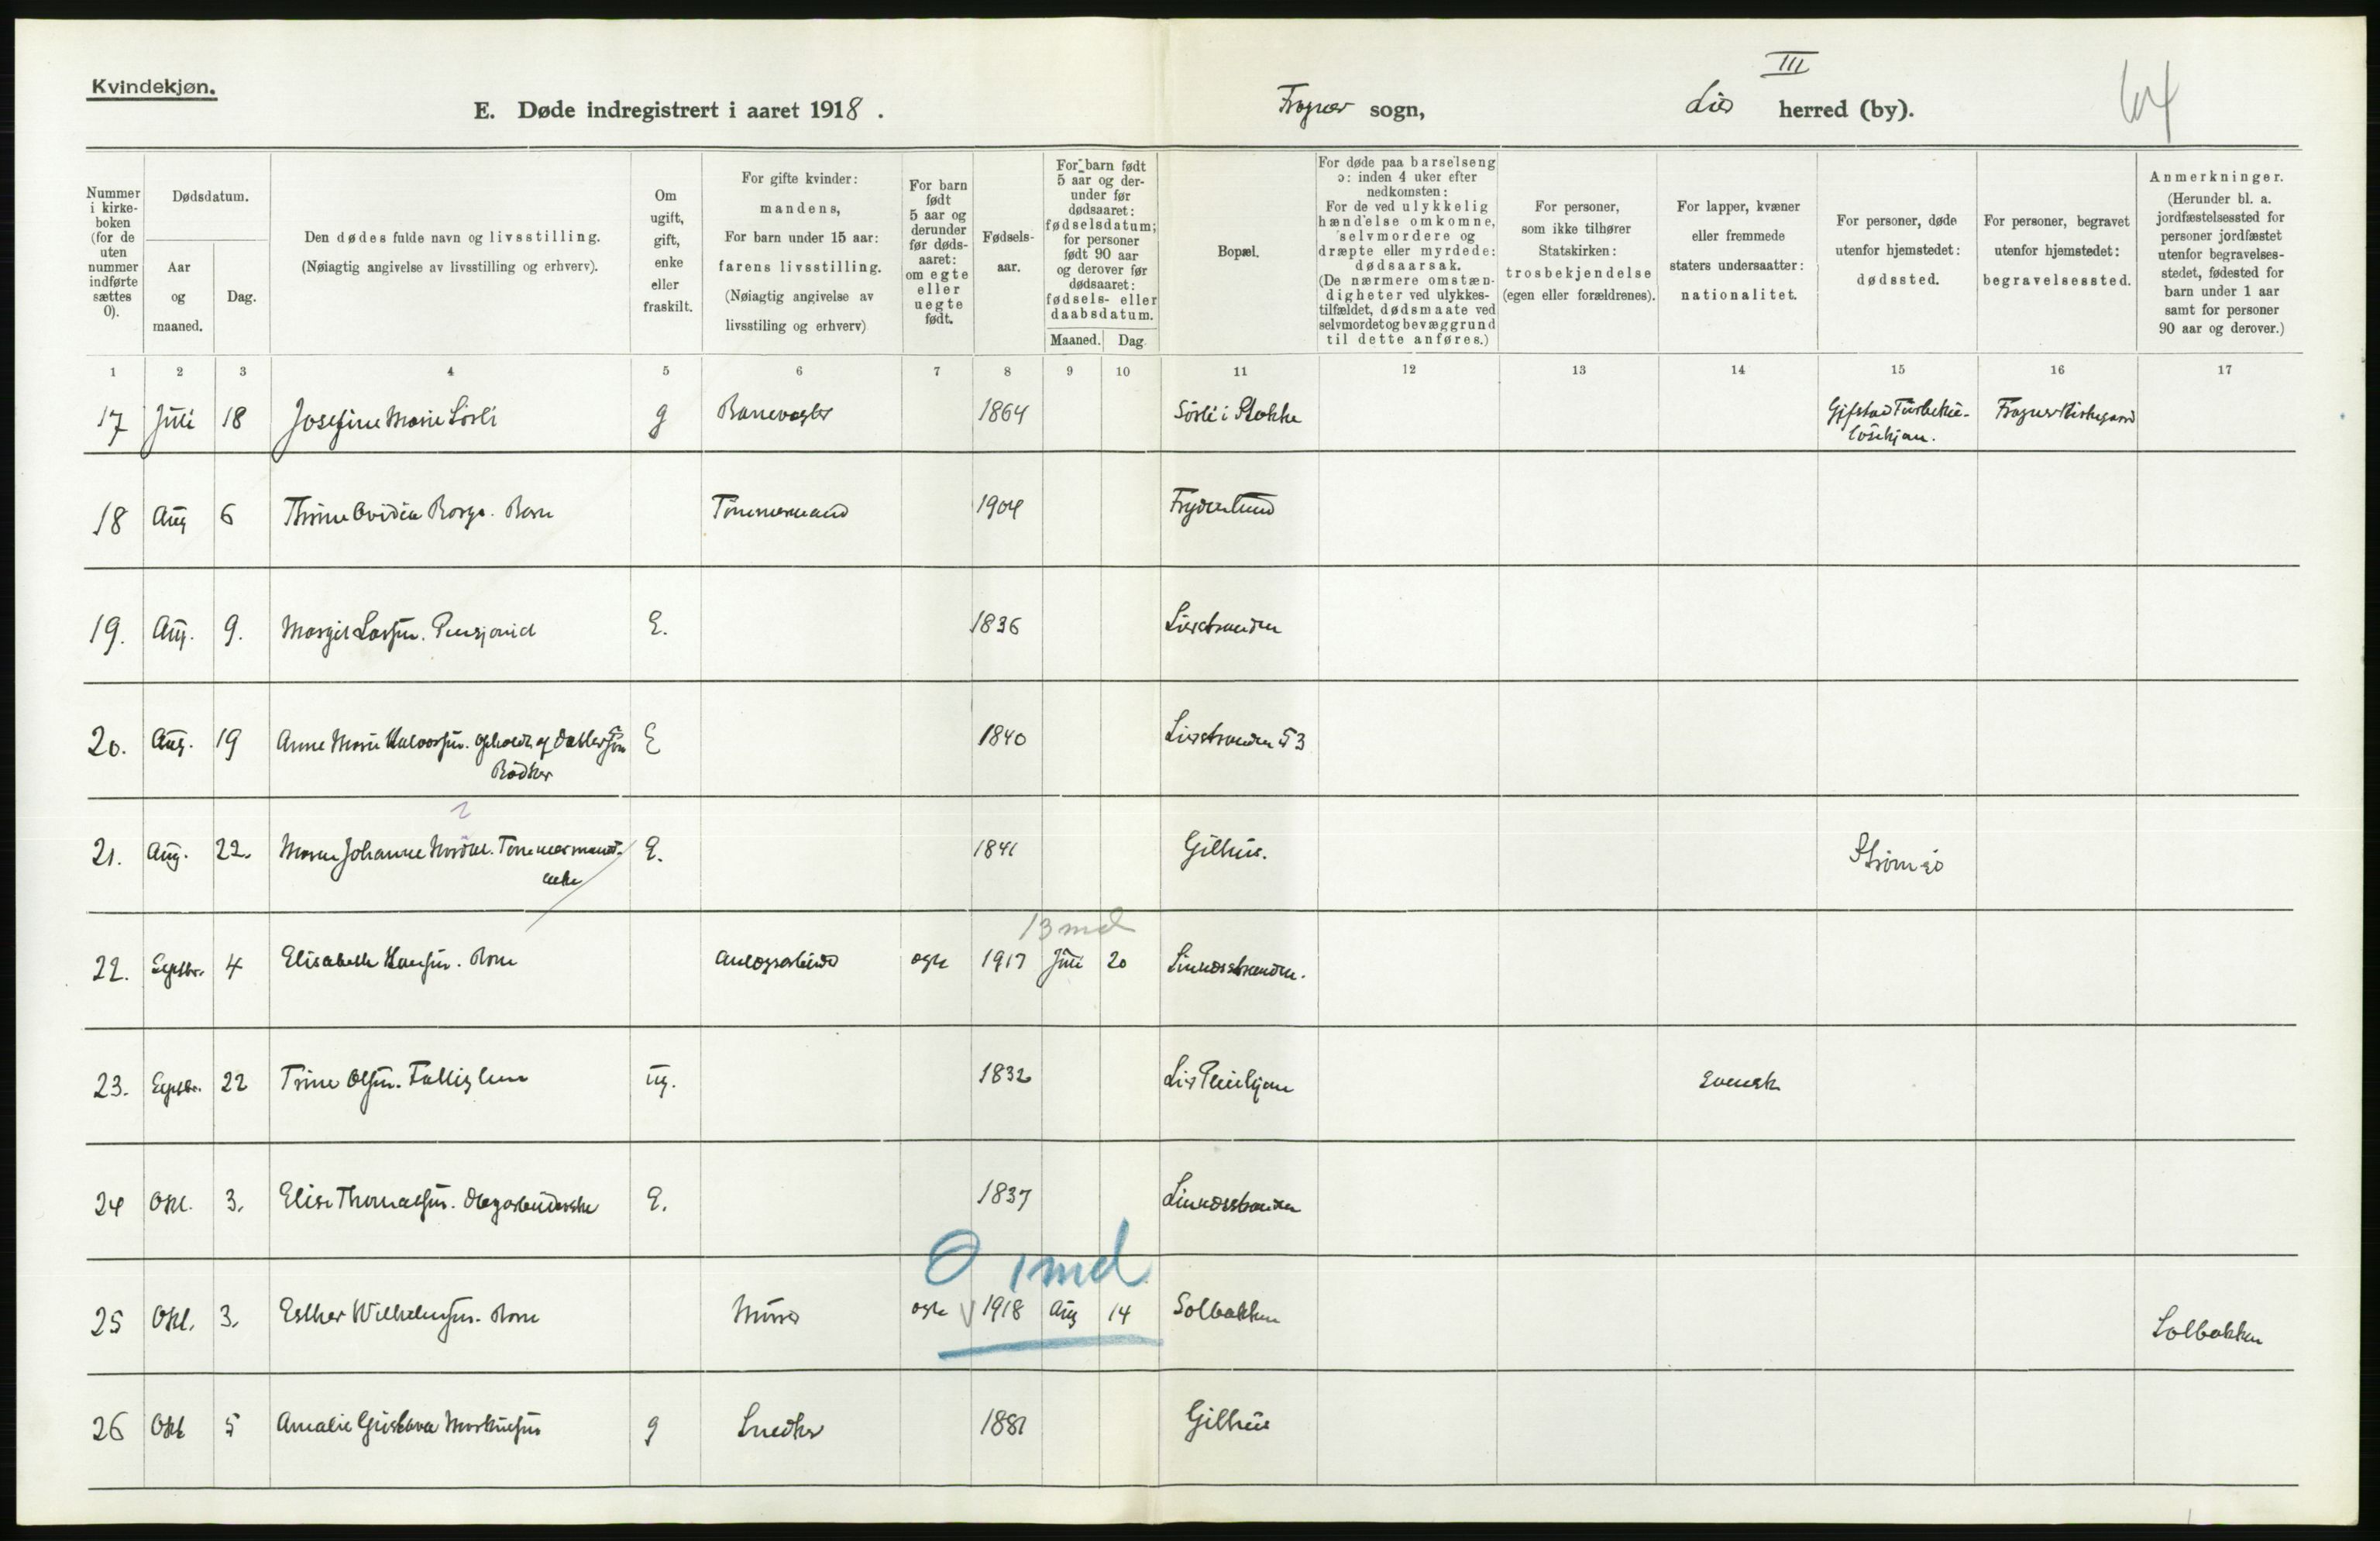 III
64
Kvindekjøn.
E. Døde indregistrert i aaret 1918. Frogner sogn, Lier herred (by).
Nummer i kirkeboken (for de uten nummer indførte sættes 0).
Dødsdatum.
Aar og maaned.
Dag.
Den dødes fulde navn og livsstilling.
(Nøiagtig angivelse av livsstilling og erhverv).
Om ugift, gift, enke eller fraskilt.
For gifte kvinder: mandens,
For barn under 15 aar: farens livsstilling.
(Nøiagtig angivelse av livsstiling og erhverv)
For barn født 5 aar og derunder før dødsaaret: om egte eller uegte født.
Fødselsaar.
For barn født 5 aar og derunder før dødsaaret: fødselsdatum; for personer født 90 aar og derover før dødsaaret: fødsels- eller daabsdatum.
Maaned. Dag
Bopæl.
For døde paa barselseng ɔ: inden 4 uker efter nedkomsten:
For de ved ulykkelig hændelse omkomne, selvmordere og dræpte eller myrdede: dødsaarsak.
(De nærmere omstændigheter ved ulykkestilfældet, dødsmaate ved selvmordet og bevæggrund til dette anføres.)
For personer, som ikke tilhører Statskirken: trosbekjendelse (egen eller forældrenes).
For lapper, kvæner eller fremmede staters undersaatter: nationalitet.
For personer, døde utenfor hjemstedet: dødssted.
For personer, begravet utenfor hjemstedet: begravelsessted.
Anmerkninger.
(Herunder bl. a. jordfæstelsessted for personer jordfæstet utenfor begravelsesstedet, fødested for barn under 1 aar samt for personer 90 aar og derover.)
1 2 3 4 5 6 7 8 9 10 11 12 13 14 15 16 17
17 Juli 18 Josefine Marie Sørli g Banevogter 1864 Sørli i Stokke Frogner Kirkegaard
18 Aug 6 Borge. Barn Tømmermand 1904 Frydenlund
19. Aug. 9. Margit Larsen. Pensjonist E. 1836 Lierstranden
20. Aug. 19 Anne Marie Halvorsen. E 1840 Lierstranden 53
Bødker
21. Aug. 22. Maren Johanne Tømmermands- E. 1841 Gilhus. Strømsø
enke
13 md
22. Septbr. 4 Elisabeth Hansen. Barn Anlægsarbeider egte 1917 Juli 20 Linnesstranden.
23. Septbr. 22 Trine Olsen. Fattiglem ug. 1832 Lier Pleiehjem Svensk
24 Okt. 3. Elise Thomassen. E. 1837 Linnesstranden
0 1 md
25 Okt. 3. Esther Wilhelmsen. Barn Murer egte V 1918 Aug 14 Solbakken Solbakken
26 Okt 5 Amalie Gustava Martinsen g Snedker 1881 Gilhus